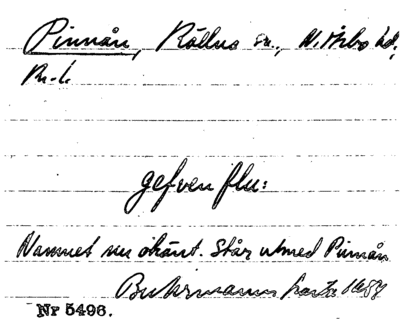 Pinnån, Källna sn., N. Åsbo hd,
Kr. l.
gefven flu:
Namnet nu okänt. Står utmed Pinnån
Buhrmanns karta 1684
Nr 5496.